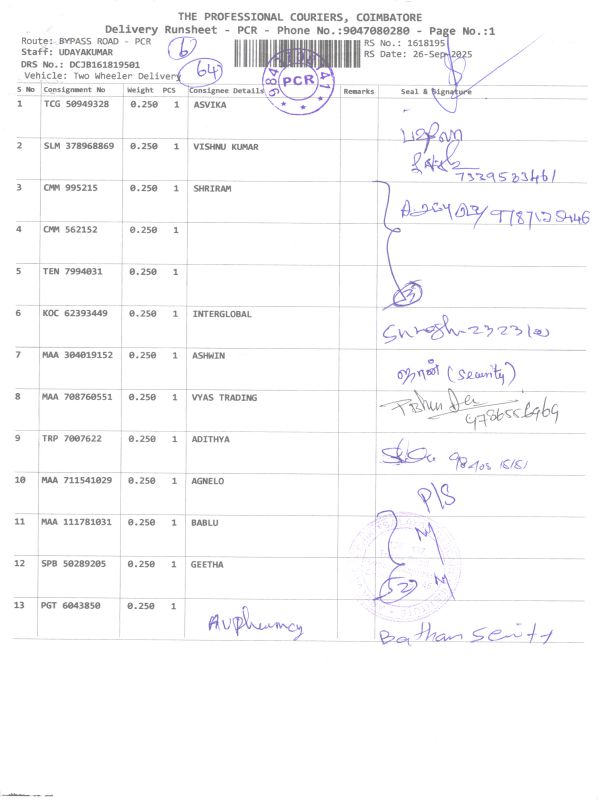 THE PROFESSIONAL COURIERS, COIMBATORE
Delivery Runsheet - PCR - Phone No.:9047080280 - Page No.:1
Route: BYPASS ROAD - PCR
RS No.: 1618195
Staff: UDAYAKUMAR
RS Date: 26-Sep-2025
DRS No.: DCJB161819501
Vehicle: Two Wheeler Delivery
6
64
PCR
S No Consignment No Weight PCS Consignee Details Remarks Seal & Signature
1 TCG 50949328 0.250 1 ASVIKA
2 SLM 378968869 0.250 1 VISHNU KUMAR
3 CMM 995215 0.250 1 SHRIRAM
4 CMM 562152 0.250 1
5 TEN 7994031 0.250 1
3
6 KOC 62393449 0.250 1 INTERGLOBAL
7 MAA 304019152 0.250 1 ASHWIN (Security)
8 MAA 708760551 0.250 1 VYAS TRADING
9786556969
9 TRP 7007622 0.250 1 ADITHYA
10 MAA 711541029 0.250 1 AGNELO P/S
11 MAA 111781031 0.250 1 BABLU
12 SPB 50289205 0.250 1 GEETHA
13 PGT 6043850 0.250 1